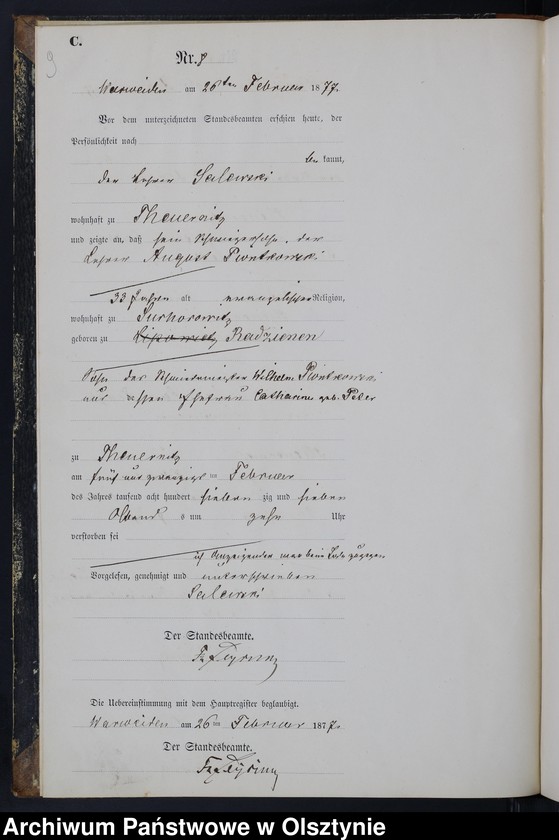 C.
9
Nr. 8
Warweiden am 26ten Februar 1877.
Vor dem unterzeichneten Standesbeamten erschien heute, der
Persönlichkeit nach
be kannt,
der Lehrer Salewski
wohnhaft zu Theuernitz
und zeigte an, daß sein Schwiegersohn, der
Lehrer August Piontkowski
33 Jahren alt evangelischer Religion,
wohnhaft zu
geboren zu Radzienen
Sohn des Wilhelm Piontkowski
und dessen Ehefrau Catharine geb. Peter
zu Theuernitz
am fünf und zwanzigs ten Februar
des Jahres tausend acht hundert sieben zig und sieben
Abends um zehn Uhr
verstorben sei
Vorgelesen, genehmigt und unterschrieben
Salewski
Der Standesbeamte.
Die Uebereinstimmung mit dem Hauptregister beglaubigt.
Warweiden am 26ten Februar 1877.
Der Standesbeamte.
Archiwum Państwowe w Olsztynie